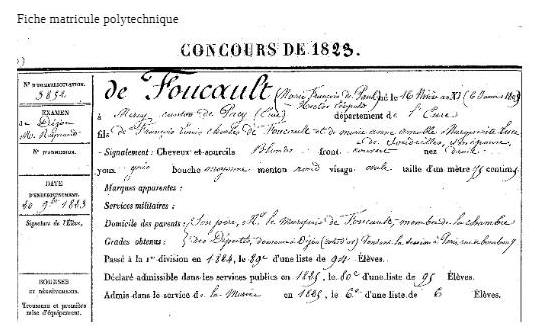 Fiche matricule polytechnique
CONCOURS DE 1823.
N° D'IMMATRICULATION.
3852
EXAMEN
de Dijon
M. Reynaud
N° D'ADMISSION.
DATE
D'ENREGISTREMENT.
20 9bre 1823
Signature de l'Élève.
BOURSES
ET DÉGRÈVEMENTS.
Trousseau et première
mise d'équipement.
de Foucault (Marie François de Paul) né le 16 Nivôse an XI (6 Janvier 1803)
à Mercey canton de Pacy (Eure) département de l'Eure
fils de François Louis de Foucault et de Marie Anne Marguerite
- Signalement : Cheveux et sourcils Blonds front couvert nez droit
yeux gris bouche moyenne menton rond visage ovale taille d'un mètre 75 centimèt
Marques apparentes :
Services militaires :
Domicile des parents : Son père, Mr. le Marquis de Foucault, membre de la chambre
Grades obtenus : des Députés, demeure à Dijon (côte d'or) Pendant la session à Paris, rue
Passé à la 1re division en 1824, le 89e d'une liste de 94 Élèves.
Déclaré admissible dans les services publics en 1825, le 80e d'une liste de 95 Élèves.
Admis dans le service de la Marine en 1825, le 6e d'une liste de 6 Élèves.